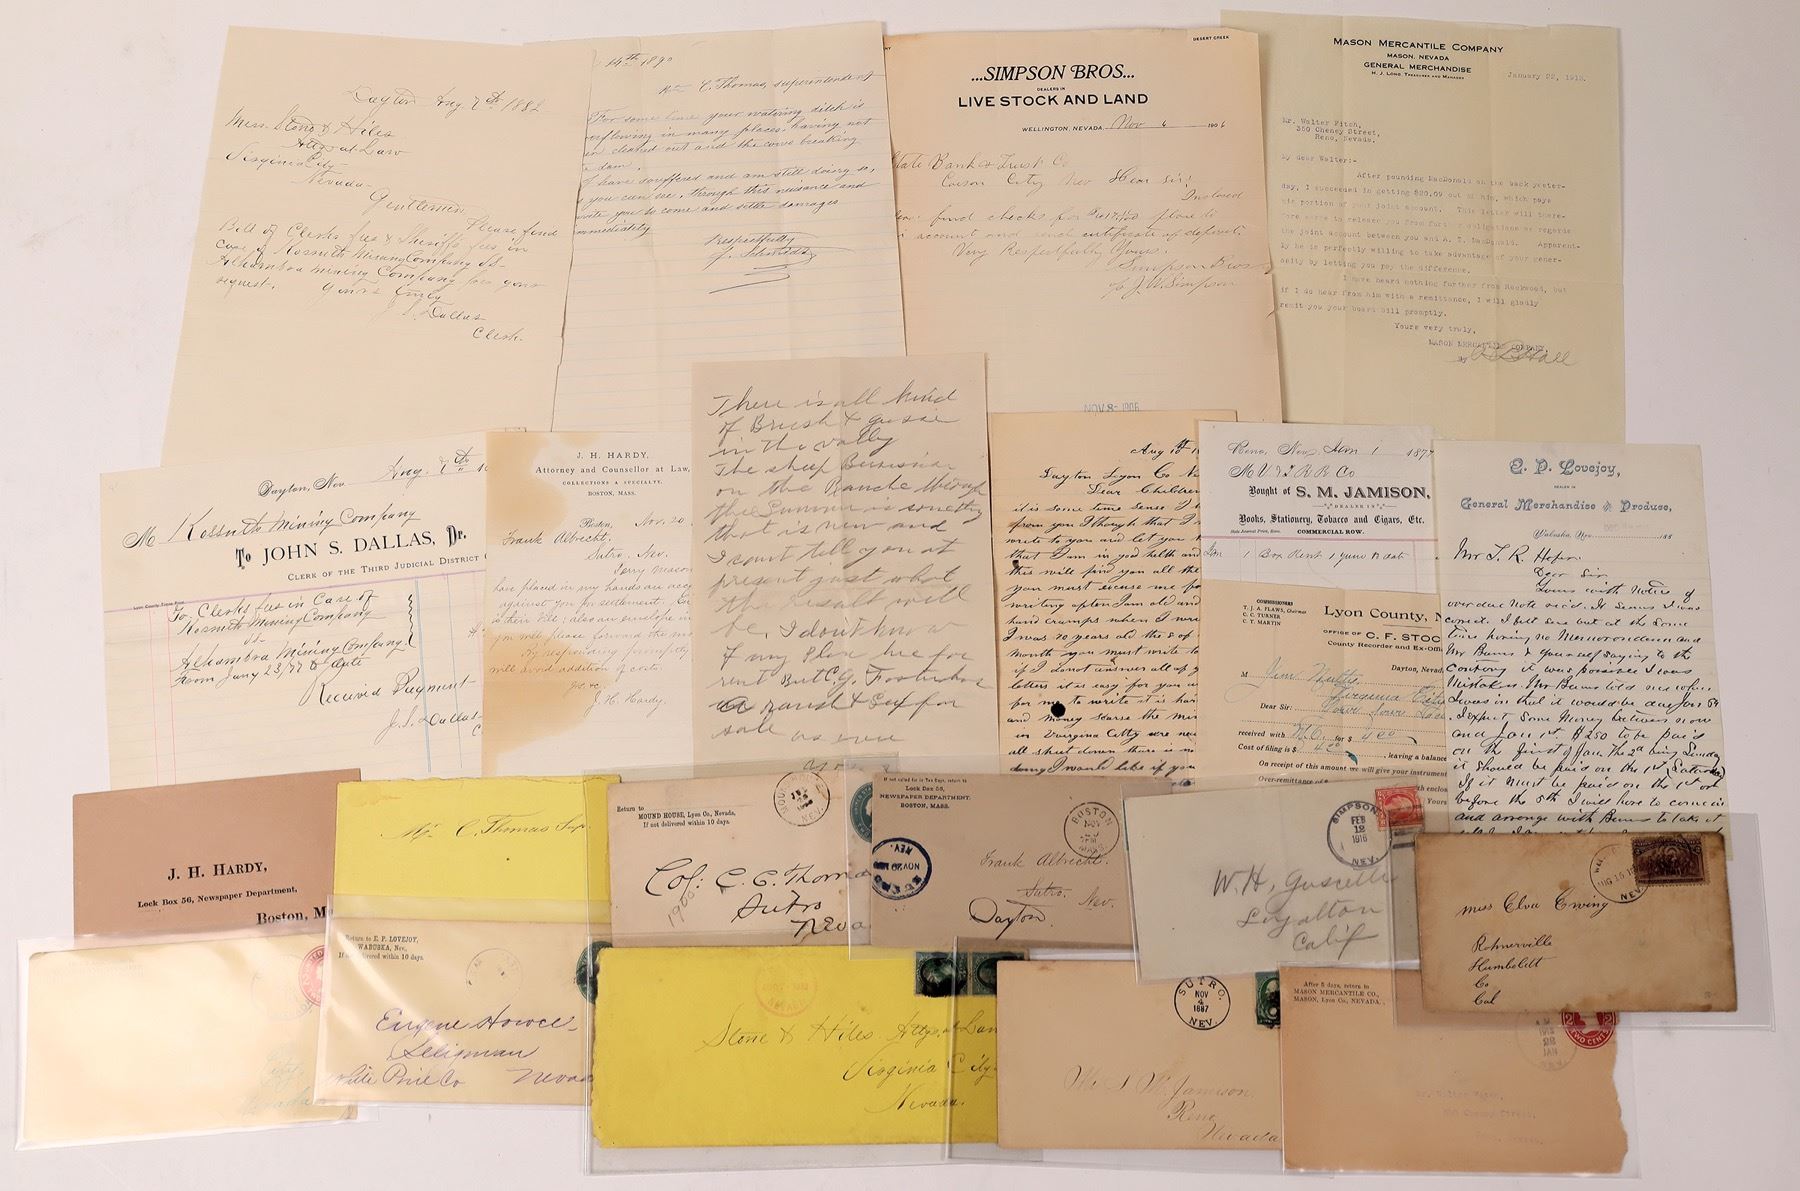 Dayton Aug. 7th 1882
Mess. Stone & Hiles
Attys at Law
Virginia City
Nevada
Gentlemen
Please find
Bill of Clerks fees & Sheriffs fees in
case of Kossuth Mining Company vs
Alhambra Mining Company for your
request. Yours Truly
J. S. Dallas
Clerk.
14th 1890
C. Thomas, superintendent
For some time your watering ditch is
overflowing in many places having not
cleaned out and the cows breaking
dam.
I have souffered and am still doing so,
you can see, through this nuisance and
you to come and settle damages
immediately
Respectfully
J. Schmidt
DESERT CREEK
...SIMPSON BROS...
DEALERS IN
LIVE STOCK AND LAND
WELLINGTON, NEVADA, Nov 6 1906
State Bank & Trust Co
Carson City Nev Dear Sir!
Inclosed
find checks for place to
account and send certificate of deposit.
Very Respectfully Yours.
Simpson Bros
J. W. Simpson
NOV 8- 1906
MASON MERCANTILE COMPANY
MASON, NEVADA
GENERAL MERCHANDISE
H. J. LONG, TREASURER AND MANAGER
January 22, 1913.
Mr. Walter Fitch,
350 Cheney Street,
Reno, Nevada.
My dear Walter:-
After pounding MacDonald on the back yester-
day, I succeeded in getting $20.09 out of him, which pays
his portion of your joint account. This letter will there-
fore serve to release you from further obligations as regards
the joint account between you and A. T. MacDonald. Apparent-
ly he is perfectly willing to take advantage of your gener-
osity by letting you pay the difference.
I have heard nothing further from Rockwood, but
if I do hear from him with a remittance, I will gladly
remit you your board bill promptly.
Yours very truly,
MASON MERCANTILE COMPANY,
By
Dayton, Nev Aug. 7th
M Kossuth Mining Company
To JOHN S. DALLAS, Dr.
CLERK OF THE THIRD JUDICIAL DISTRICT
Lyon County Times Print.
To Clerks fees in Case of
Kossuth Mining Company
vs
Alhambra Mining Company
From Jany 23/77 to date
Received Payment
J. S. Dallas
J. H. HARDY,
Attorney and Counsellor at Law,
COLLECTIONS A SPECIALTY.
BOSTON, MASS.
Boston, Nov. 20
Frank Albrecht,
Sutro, Nev.
have placed in my hands an acc
against you for settlement.
is their bill; also an envelope in
you will please forward the
By responding promptly
will avoid addition of costs.
J. H. Hardy.
There is all kind
of Brush & grass
in the valley
The sheep Buisness
on the Ranche through
the Summer is something
that is new and
I cant tell you at
present just what
the result will
be. I dont know
of any place here for
rent But C.G.
a ranch & Sex for
sale as ever
Aug 10th
Dayton Lyon Co Ne
Dear Children
it is some time sense I
from you I though that I
write to you and let you
that I am in good helth and
this will find you all the
you must excuse me for
writing often I am old and
hand cramps when I wr
I was 70 years old the 8 of
month you must write to
if I do not answer all of y
letters it is easy for you
for me to write it is har
and money scarse the min
in Virginia Citty are ne
all shut down there is no
doing I would like if you
Reno, Nev. Jan 1 1877
M V & T R R Co
Bought of S. M. JAMISON,
DEALER IN
Books, Stationery, Tobacco and Cigars, Etc.
COMMERCIAL ROW.
State Journal Print, Reno.
Jan 1 Box Rent 1 year to date
COMMISSIONERS
T. J. A. FLAWS, Chairman
C. C. TURNER
C. T. MARTIN
Lyon County, N
OFFICE OF C. F. STOC
County Recorder and Ex-Off
Dayton, Nevad
M Jim
Virginia City
Dear Sir:
received with for $ 4 00
Cost of filing is $ 4 00, leaving a balance
On receipt of this amount we will give your instrument
Over-remittance of
Yours
E. P. Lovejoy,
DEALER IN
General Merchandise & Produce,
Wabuska, Nev. 188
Mr T. R. Hofer
Dear Sir,
Yours with Notice of
over due Note rec'd. It seems I was
correct. I felt sure but at the same
time having no Memorandum and
Mr Burns & yourself saying to the
contrary it was possible I was
mistaken. Mr Burns told me when
I was in that it would be due Jan 5th
I expect some money between now
and Jan 1st, $250 to be paid
on the first of Jan. The 2d being Sunday
it should be paid on the 1st (Saturday)
If it must be paid on the 1st or
before the 5th I will have to come in
and arrange with Burns to take it
J. H. HARDY,
Lock Box 56, Newspaper Department,
Boston, M
Mr C. Thomas Sup.
Return to
MOUND HOUSE, Lyon Co., Nevada,
If not delivered within 10 days.
NEV.
Col: C. C. Thoma
Sutro
Neva
1900
If not called for in Ten Days, return to
Lock Box 56,
NEWSPAPER DEPARTMENT,
BOSTON, MASS.
BOSTON
NOV
MASS.
SUTRO
NOV 26
NEV.
Frank Albrecht.
Sutro, Nev.
Dayton
SIMPSON
FEB
12
1916
NEV.
W. H. Guscetti
Loyalton
Calif
AUG 15
NEV.
Miss Elva Ewing
Rohnerville
Humboldt
Co
Cal
Return to E. P. LOVEJOY,
WABUSKA, Nev.,
If not delivered within 10 days.
Eugene Howell
Seligman
White Pine Co Nevad
Stone & Hiles Attys at Law
Virginia City
Nevada.
SUTRO.
NOV
4
1887
NEV.
Mr S. M. Jamison
Reno
Nevada
After 5 days, return to
MASON MERCANTILE CO.,
MASON, Lyon Co., NEVADA.
2 TWO CENTS 2
Mr. Walter Fitch,
350 Cheney Street,
Reno, Nevada.
Nevada